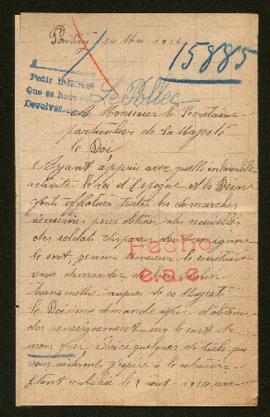 Pontivy 14 Mai 1916
15885
Pedir informes
Que se
Devolver
Le Pollec
Monsieur le Secrétaire
particulier de Sa Majesté
le Roi
Ayant appris avec quelle inlassable
activité le Roi d'Espagne et la Reine
font effectuer toutes les démarches
nécessaires pour obtenir des nouvelles
des soldats disparus dont
le sort, je viens Monsieur le secrétaire
vous demander de bien vouloir
transmettre auprès de sa Majesté
le Roi ma demande afin d'obtenir
des renseignements sur le sort de
mon fils. Voici quelques détails qui
vous aideront j'espère à le retrouver
Etant mobilisé le 2 août 1914
Hecho
e.a.e.